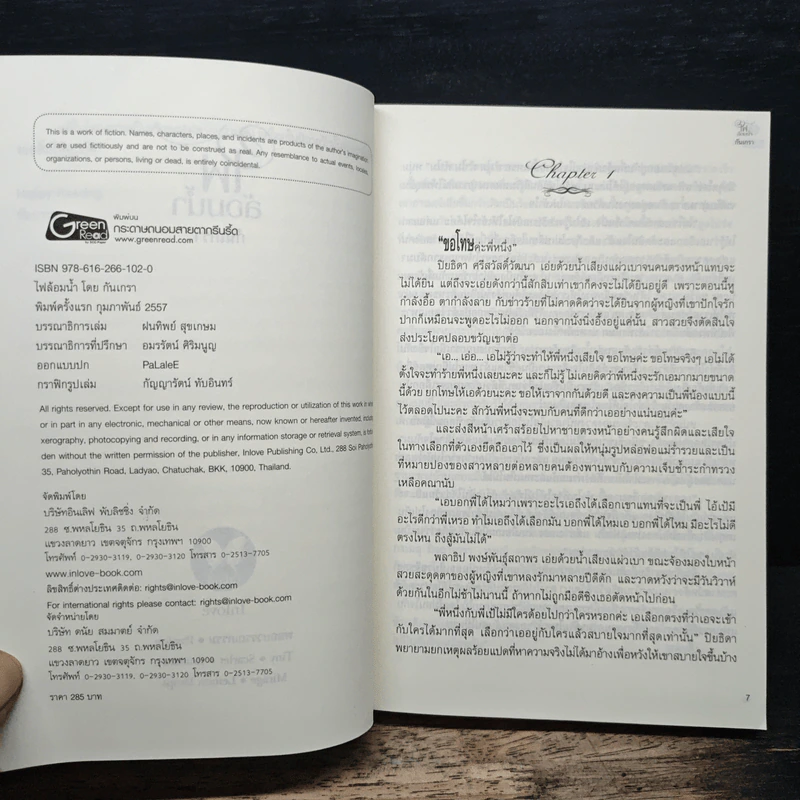 This is a work of fiction. Names, characters, places, and incidents are products of the author's imagination
or are used fictitiously and are not to be construed as real. Any resemblance to actual events, locales,
organizations, or persons, living or dead, is entirely coincidental.
Green Read
พิมพ์บน
กระดาษถนอมสายตากรีนรี้ด
www.greenread.com
ISBN 978-616-266-102-0
ไฟล้อมน้ำ โดย กันเกรา
พิมพ์ครั้งแรก กุมภาพันธ์ 2557
บรรณาธิการเล่ม ฝนทิพย์ สุขเกษม
บรรณาธิการที่ปรึกษา อมรรัตน์ ศิริมนูญ
ออกแบบปก PaLaleE
กราฟิกรูปเล่ม กัญญารัตน์ ทับอินทร์
All rights reserved. Except for use in any review, the reproduction or utilization of this work in
or in part in any electronic, mechanical or other means, now known or hereafter invented,
xerography, photocopying and recording, or in any information storage or retrieval system, is
den without the written permission of the publisher, Inlove Publishing Co., Ltd., 288 Soi
35, Paholyothin Road, Ladyao, Chatuchak, BKK, 10900, Thailand.
จัดพิมพ์โดย
บริษัทอินเลิฟ พับลิชชิ่ง จำกัด
288 ซ.พหลโยธิน 35 ถ.พหลโยธิน
แขวงลาดยาว เขตจตุจักร กรุงเทพฯ 10900
โทรศัพท์ 0-2930-3119, 0-2930-3120 โทรสาร 0-2513-7705
www.inlove-book.com
ลิขสิทธิ์ต่างประเทศติดต่อ: rights@inlove-book.com
For international rights please contact: rights@inlove-book.com
จัดจำหน่ายโดย
บริษัท ดนัย สมมาตย์ จำกัด
288 ซ.พหลโยธิน 35 ถ.พหลโยธิน
แขวงลาดยาว เขตจตุจักร กรุงเทพฯ 10900
โทรศัพท์ 0-2930-3119, 0-2930-3120 โทรสาร 0-2513-7705
ราคา 285 บาท
กันเกรา
Chapter 1
"ขอโทษค่ะพี่หนึ่ง"
ปิยธิดา ศรีสวัสดิ์วัฒนา เอ่ยด้วยน้ำเสียงแผ่วเบาจนคนตรงหน้าแทบจะ
ไม่ได้ยิน แต่ถึงจะเอ่ยดังกว่านี้สักสิบเท่าเขาก็คงจะไม่ได้ยินอยู่ดี เพราะตอนนี้หู
กำลังอื้อ ตากำลังลาย กับข่าวร้ายที่ไม่คาดคิดว่าจะได้ยินจากผู้หญิงที่เขาปักใจรัก
ปากก็เหมือนจะพูดอะไรไม่ออก นอกจากนั่งนิ่งอึ้งอยู่แค่นั้น สาวสวยจึงตัดสินใจ
ส่งประโยคปลอบขวัญเขาต่อ
"เอ... เอ่อ... เอไม่รู้ว่าจะทำให้พี่หนึ่งเสียใจ ขอโทษค่ะ ขอโทษจริงๆ เอไม่ได้
ตั้งใจจะทำร้ายพี่หนึ่งเลยนะคะ และก็ไม่รู้ ไม่เคยคิดว่าพี่หนึ่งจะรักเอมากมายขนาด
นี้ด้วย ยกโทษให้เอด้วยนะคะ ขอให้เราจากกันด้วยดี และคงความเป็นพี่น้องแบบนี้
ไว้ตลอดไปนะคะ สักวันพี่หนึ่งจะพบกับคนที่ดีกว่าเออย่างแน่นอนค่ะ"
และส่งสีหน้าเศร้าสร้อยไปหาชายตรงหน้าอย่างคนรู้สึกผิดและเสียใจ
ในทางเลือกที่ตัวเองยึดถือเอาไว้ ซึ่งเป็นผลให้หนุ่มรูปหล่อพ่อแม่ร่ำรวยและเป็น
ที่หมายปองของสาวหลายต่อหลายคนต้องพานพบกับความเจ็บช้ำระกำทรวง
เหลือคณานับ
"เอบอกพี่ได้ไหมว่าเพราะอะไรเอถึงได้เลือกเขาแทนที่จะเป็นพี่ ไอ้เป้มี
อะไรดีกว่าพี่เหรอ ทำไมเอถึงได้เลือกมัน บอกพี่ได้ไหมเอ บอกพี่ได้ไหม มีอะไรไม่ดี
ตรงไหน ถึงสู้มันไม่ได้"
พลาธิป พงษ์พันธุ์สถาพร เอ่ยด้วยน้ำเสียงแผ่วเบา ขณะจ้องมองใบหน้า
สวยสะดุดตาของผู้หญิงที่เขาหลงรักมาหลายปีดีดัก และวาดหวังว่าจะมีวันวิวาห์
ด้วยกันในอีกไม่ช้าไม่นานนี้ ถ้าหากไม่ถูกมือดีชิงเธอตัดหน้าไปก่อน
"พี่หนึ่งกับพี่เป้ไม่มีใครด้อยไปกว่าใครหรอกค่ะ เอเลือกตรงที่ว่าเอจะเข้า
กับใครได้มากที่สุด เลือกว่าเออยู่กับใครแล้วสบายใจมากที่สุดเท่านั้น" ปิยธิดา
พยายามยกเหตุผลร้อยแปดที่หาความจริงไม่ได้มาอ้างเพื่อหวังให้เขาสบายใจขึ้นบ้าง
7